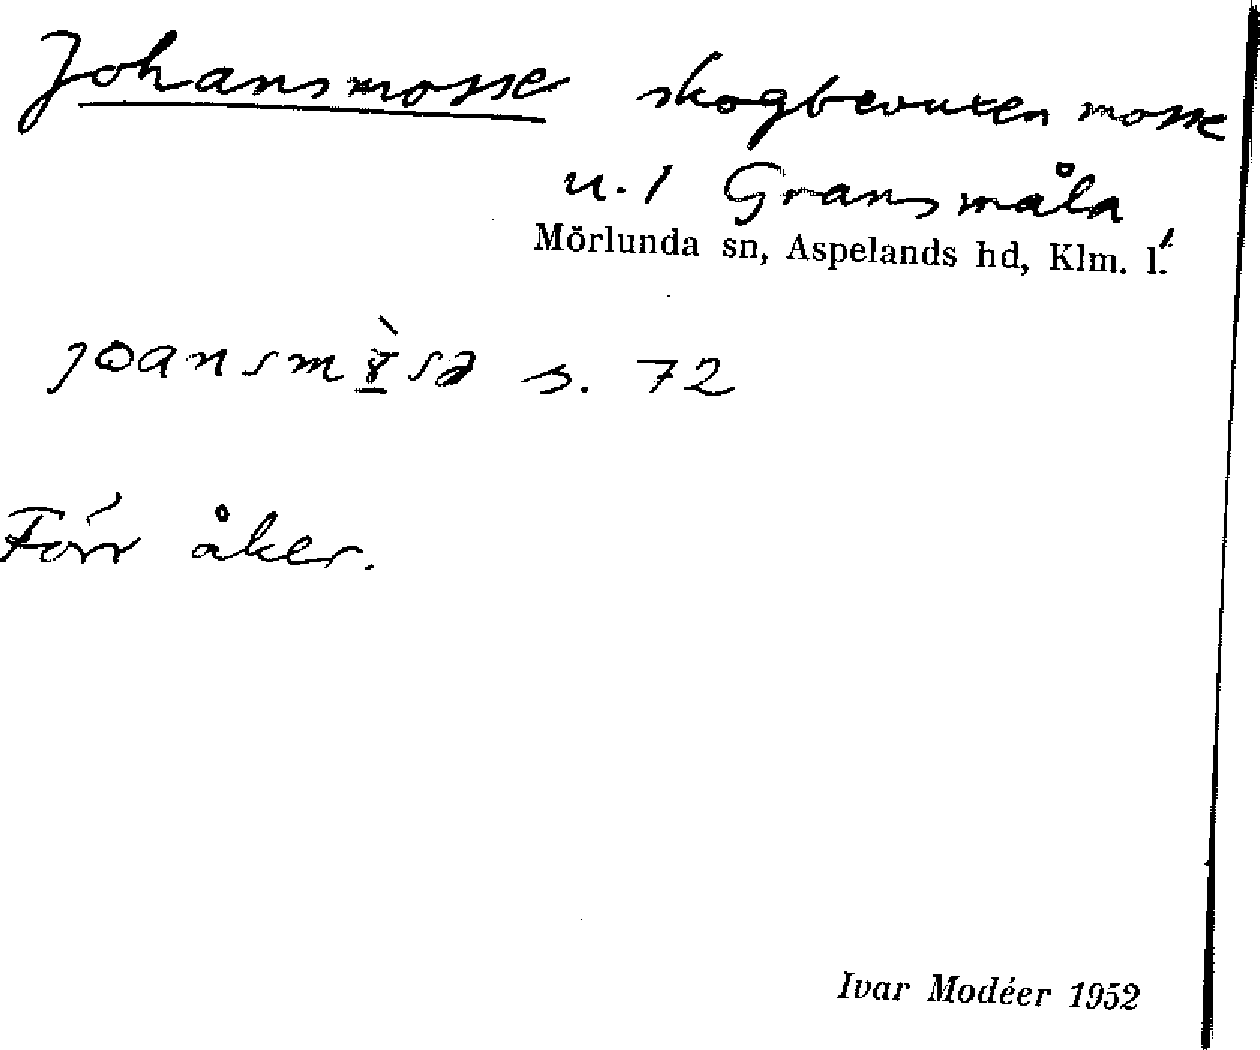 Johansmosse skogbevuxen mosse
u. 1 Gransmåla
Mörlunda sn, Aspelands hd, Klm. l.
s. 72
Förr åker.
Ivar Modéer 1952